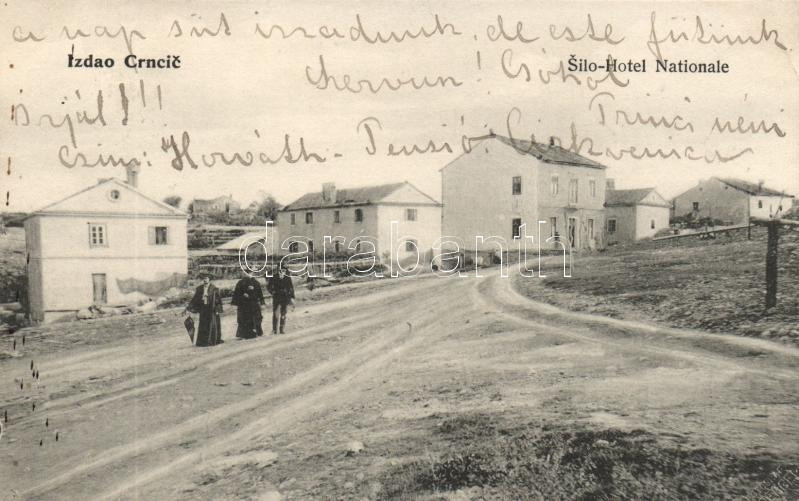 a nap süt izzadunk, de este fütünk
Izdao Crnčić
Šilo-Hotel Nationale
kervun! Csókol
irjál!!!
Trinci néni
Czim: Horváth - Pensió Cirkvenica
darabanth.com